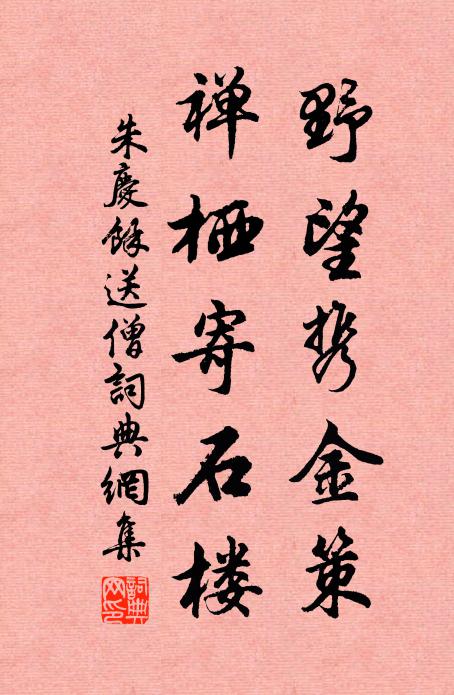 野望携金策
禅栖寄石楼
朱慶餘送僧詞典網集
詞典
网印